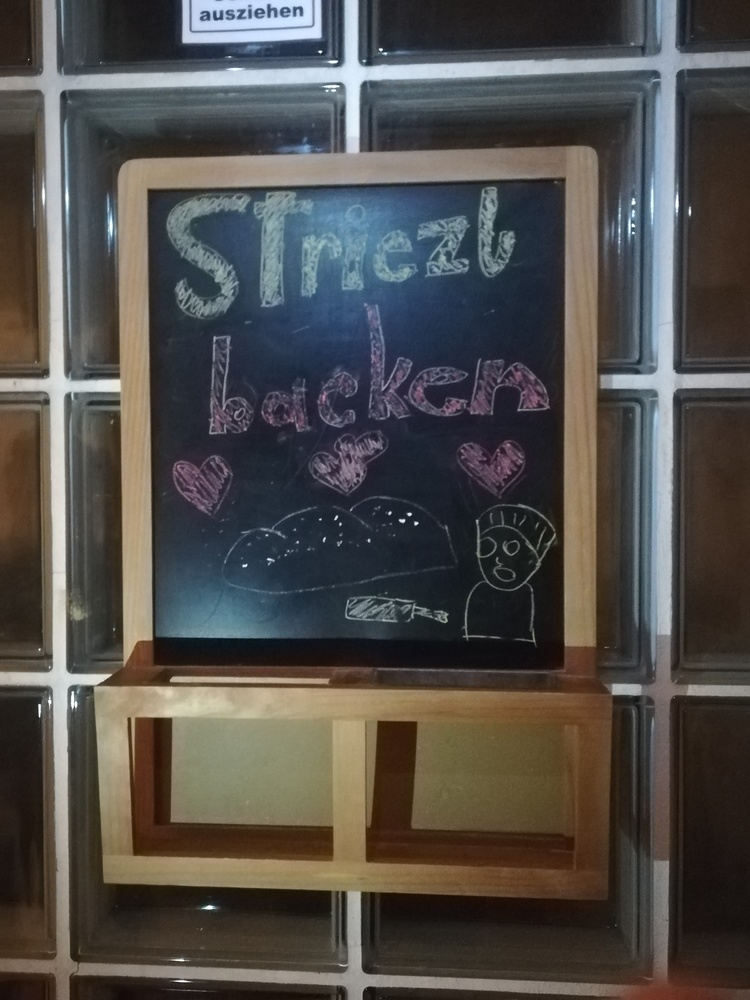 ausziehen
STriezl
backen